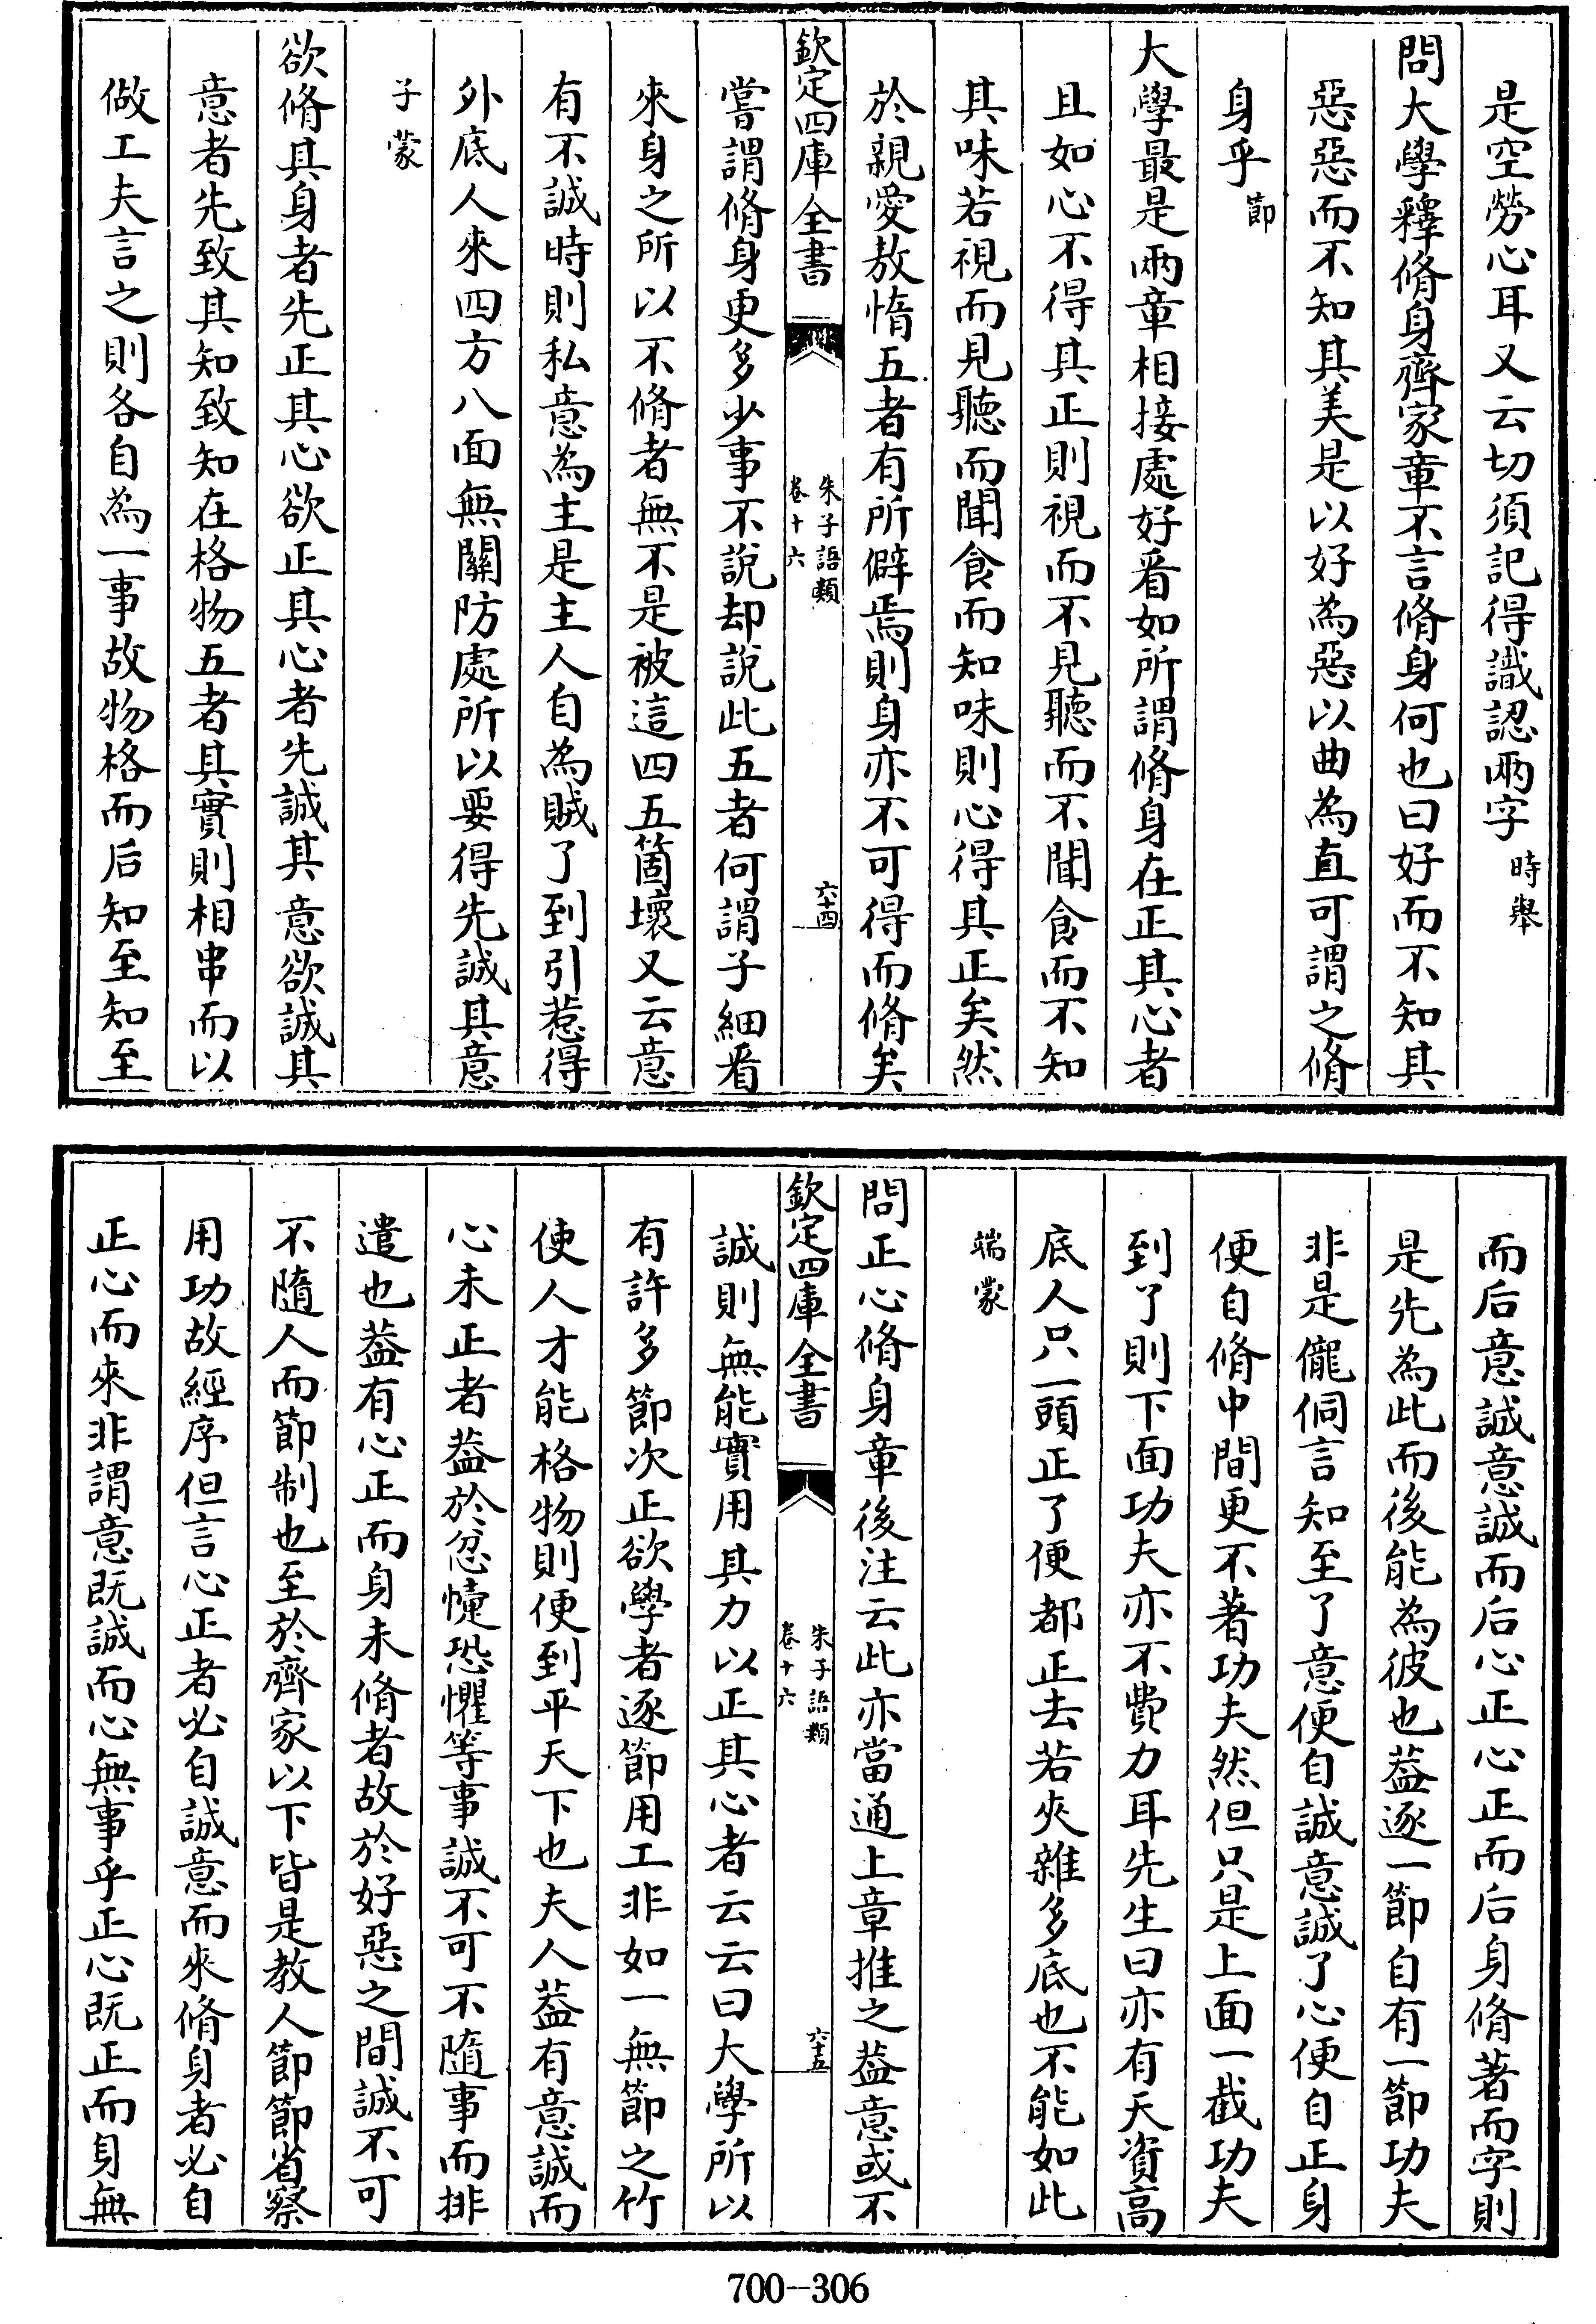 是空勞心耳又云切須記得識認兩字時舉
問大學釋脩身齊家章不言脩身何也曰好而不知其
惡惡而不知其美是以好為惡以曲為直可謂之脩
身乎節
大學最是兩章相接處好看如所謂脩身在正其心者
且如心不得其正則視而不見聽而不聞食而不知
其味若視而見聽而聞食而知味則心得其正矣然
於親愛敖惰五者有所僻焉則身亦不可得而脩矣
欽定四庫全書
朱子語類
卷十六
六十四
嘗謂脩身更多少事不說却說此五者何謂子細看
來身之所以不脩者無不是被這四五箇壞又云意
有不誠時則私意為主是主人自為賊了到引惹得
外底人來四方八面無關防處所以要得先誠其意
子蒙
欲脩其身者先正其心欲正其心者先誠其意欲誠其
意者先致其知致知在格物五者其實則相串而以
做工夫言之則各自為一事故物格而后知至知至
而后意誠意誠而后心正心正而后身脩著而字則
是先為此而後能為彼也葢逐一節自有一節功夫
非是儱侗言知至了意便自誠意誠了心便自正身
便自脩中間更不著功夫然但只是上面一截功夫
到了則下面功夫亦不費力耳先生曰亦有天資高
底人只一頭正了便都正去若夾雜多底也不能如此
端蒙
問正心脩身章後注云此亦當通上章推之葢意或不
欽定四庫全書
朱子語類
卷十六
六十五
誠則無能實用其力以正其心者云云曰大學所以
有許多節次正欲學者逐節用工非如一無節之竹
使人才能格物則便到平天下也夫人葢有意誠而
心未正者葢於忿懥恐懼等事誠不可不隨事而排
遣也葢有心正而身未脩者故於好惡之間誠不可
不隨人而節制也至於齊家以下皆是教人節節省察
用功故經序但言心正者必自誠意而來脩身者必自
正心而來非謂意既誠而心無事乎正心既正而身無
700--306